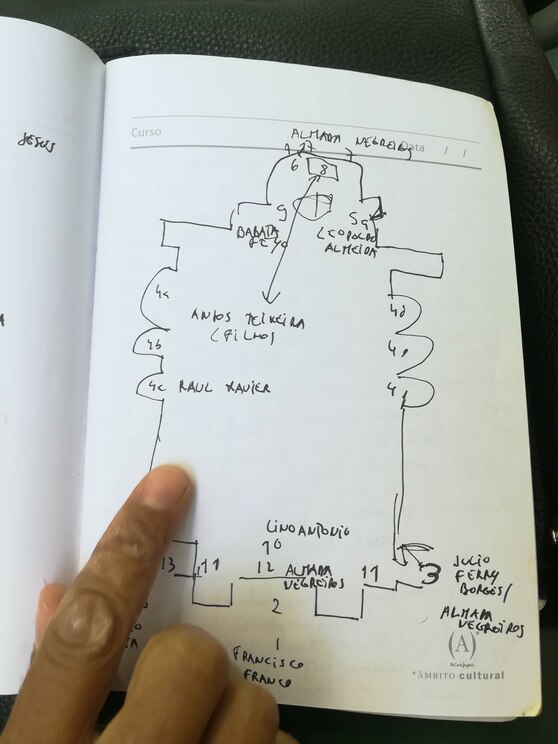 JESUS
Curso
Data / /
ALMADA NEGREIROS
6
8
9
5
LEOPOLDO
ALMEIDA
4a
ANJOS TEIXEIRA
(FILHO)
4b
4c RAUL XAVIER
LINO ANTONIO
10
13 11 12 ALMADA
NEGREIROS 11
3 JULIO
FERRY
BORGES/
ALMADA
NEGREIROS
2
1
FRANCISCO
FRANCO
(A)
El Corte Inglés
*ÂMBITO cultural